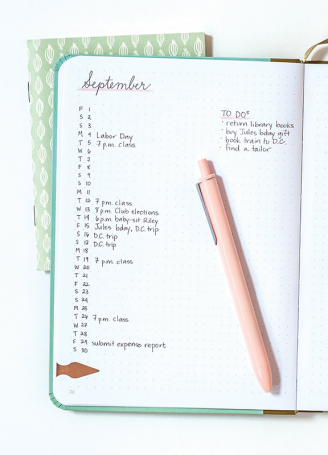 September
F 1
S 2
S 3
M 4 Labor Day
T 5 7 p.m. class
W 6
T 7
F 8
S 9
S 10
M 11
T 12 7 p.m. class
W 13 8 p.m. Club elections
T 14 6 p.m. baby-sit Riley
F 15 Jules bday, D.C. trip
S 16 D.C. trip
S 17 D.C. trip
M 18
T 19 7 p.m. class
W 20
T 21
F 22
S 23
S 24
M 25
T 26 7 p.m. class
W 27
T 28
F 29 submit expense report
S 30
TO DOS
· return library books
· buy Jules bday gift
· book train to D.C.
· find a tailor